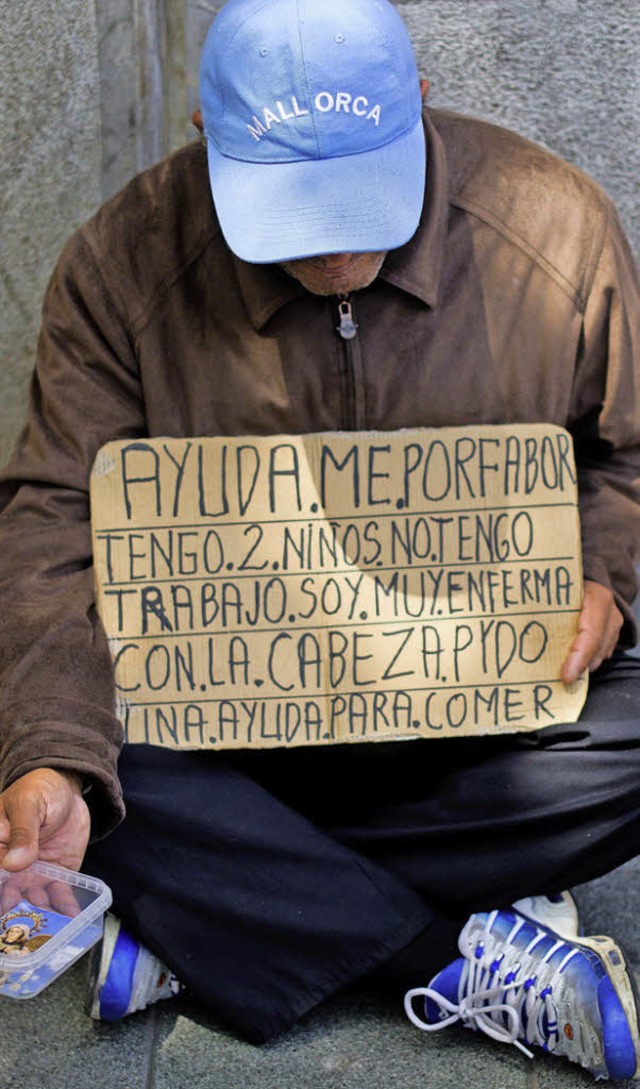 MALLORCA
AYUDA.ME.PORFABOR
TENGO.2.NIÑOS.NO.TENGO
TRABAJO.SOY.MUY.ENFERMA
CON.LA.CABEZA.PYDO
UNA.AYUDA.PARA.COMER